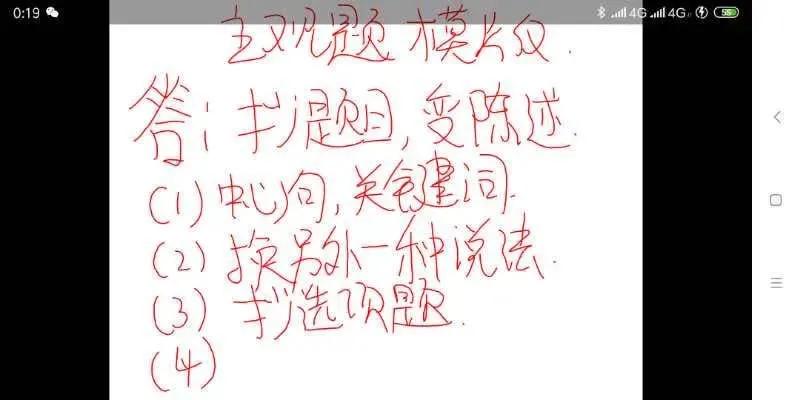 0:19
4G 4G 55
主观题 模版.
答：抄题目，变陈述.
(1) 中心句，关键词.
(2) 换另外一种说法.
(3) 抄选项题.
(4)